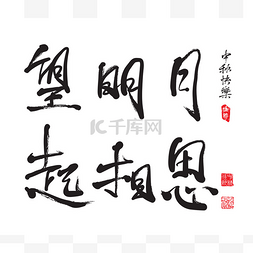 望明月
起相思
中秋快樂
千库网
588ku.com